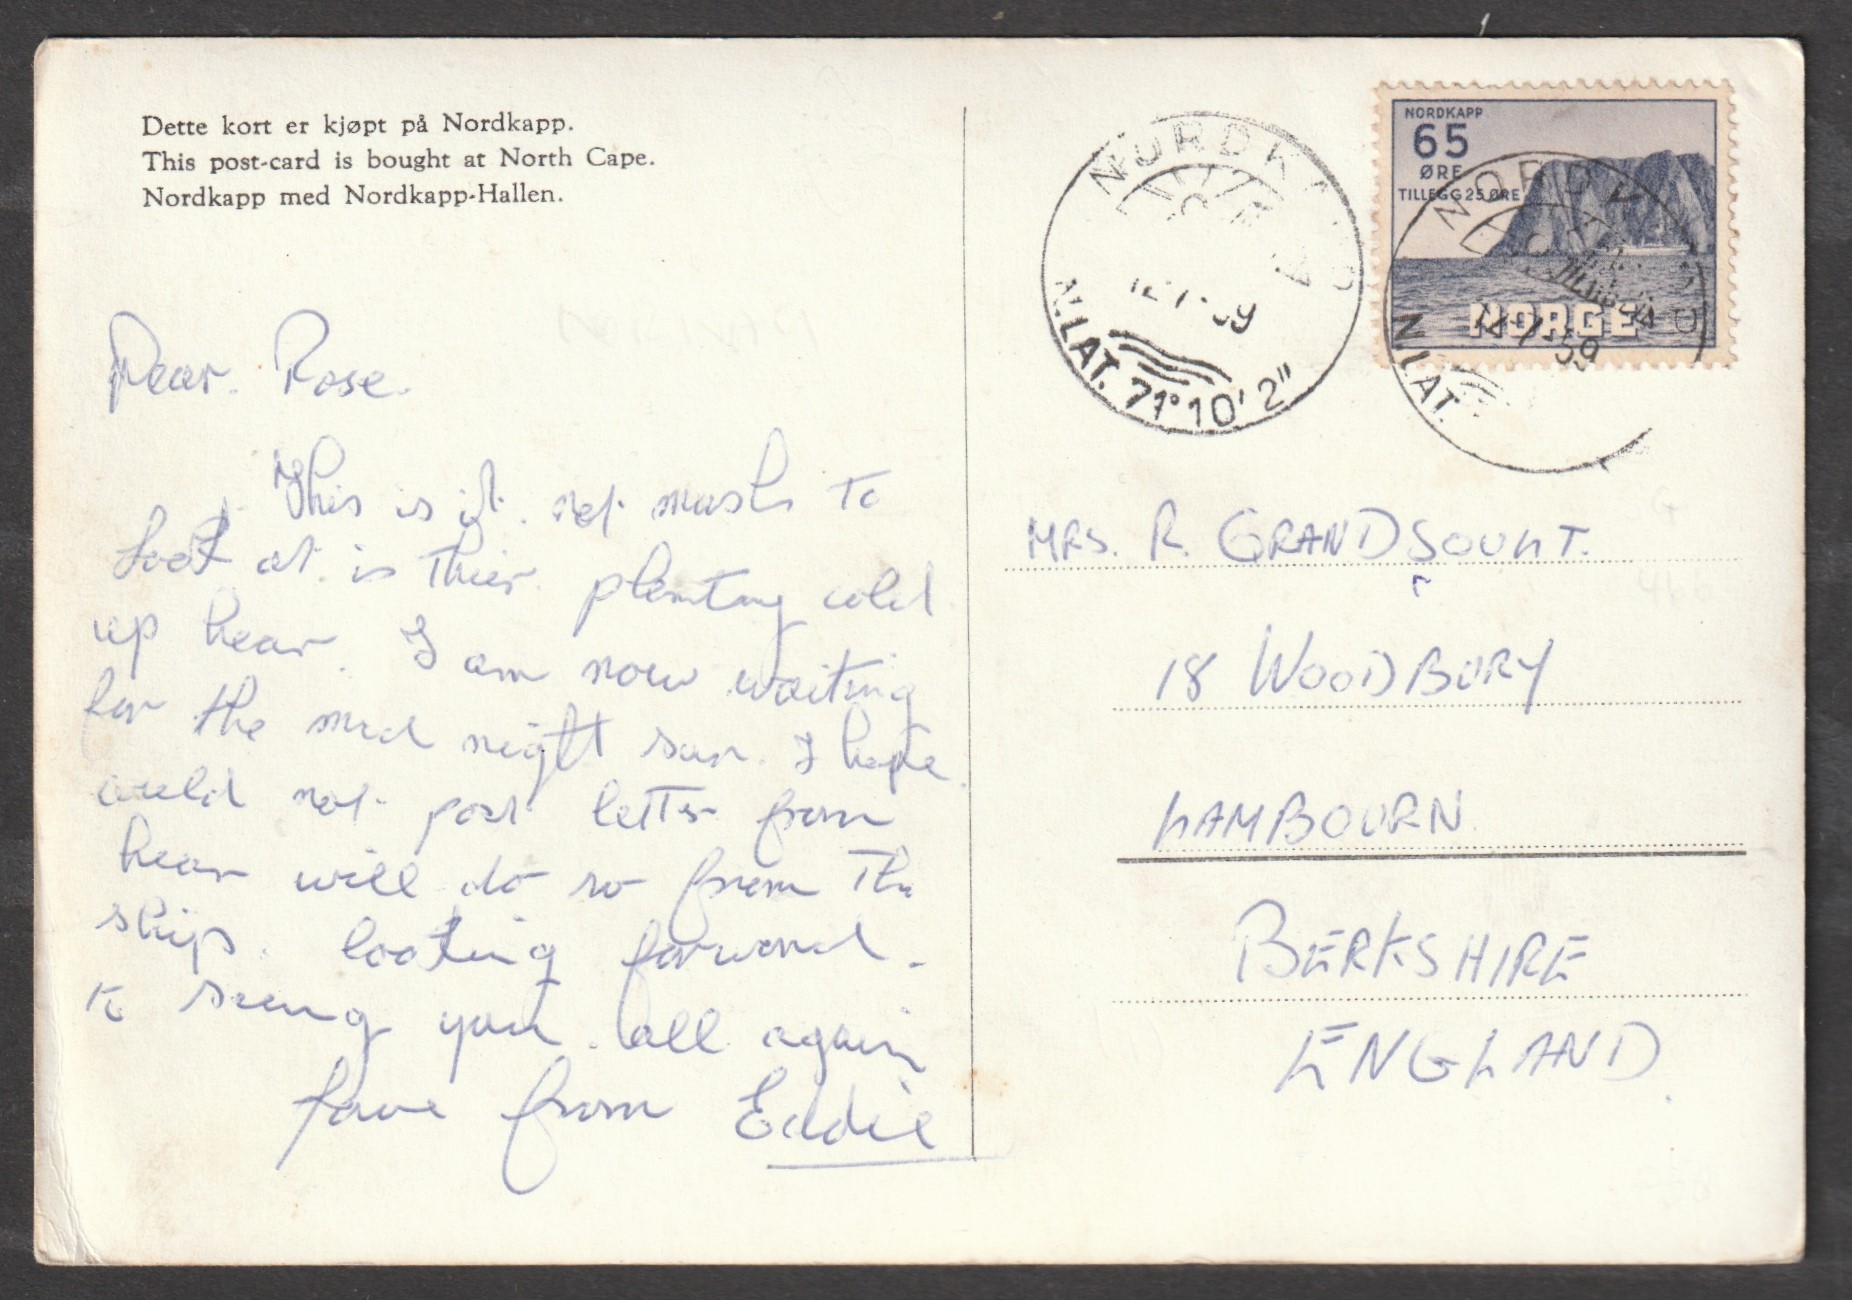 Dette kort er kjøpt på Nordkapp.
This post-card is bought at North Cape.
Nordkapp med Nordkapp-Hallen.
Dear. Rose.
This is it. not mush to
look at. is thier. plenting cold
up hear. I am now waiting
for the mid night sun. I hope
could not post letter from
hear will do so from the
ship. looking forward.
to seeing you. all again
love from Eddie
NORDKAPP
65
ØRE
TILLEGG 25 ØRE
NORGE
NORDKAPP
N.LAT. 71°10'2"
N.LAT.
MRS. R. GRANDSOULT.
18 WOODBURY
LAMBOURN
BERKSHIRE
ENGLAND.